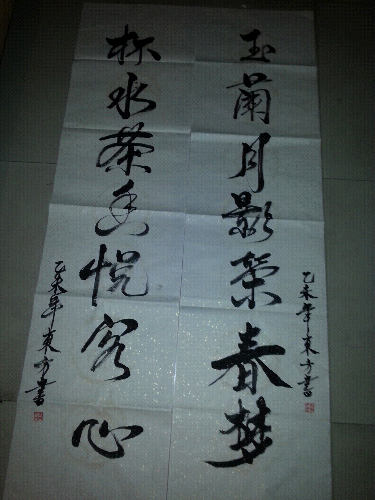 玉兰月影荣春梦
乙未年东方书
杯水茶香悦客心
乙未年东方书